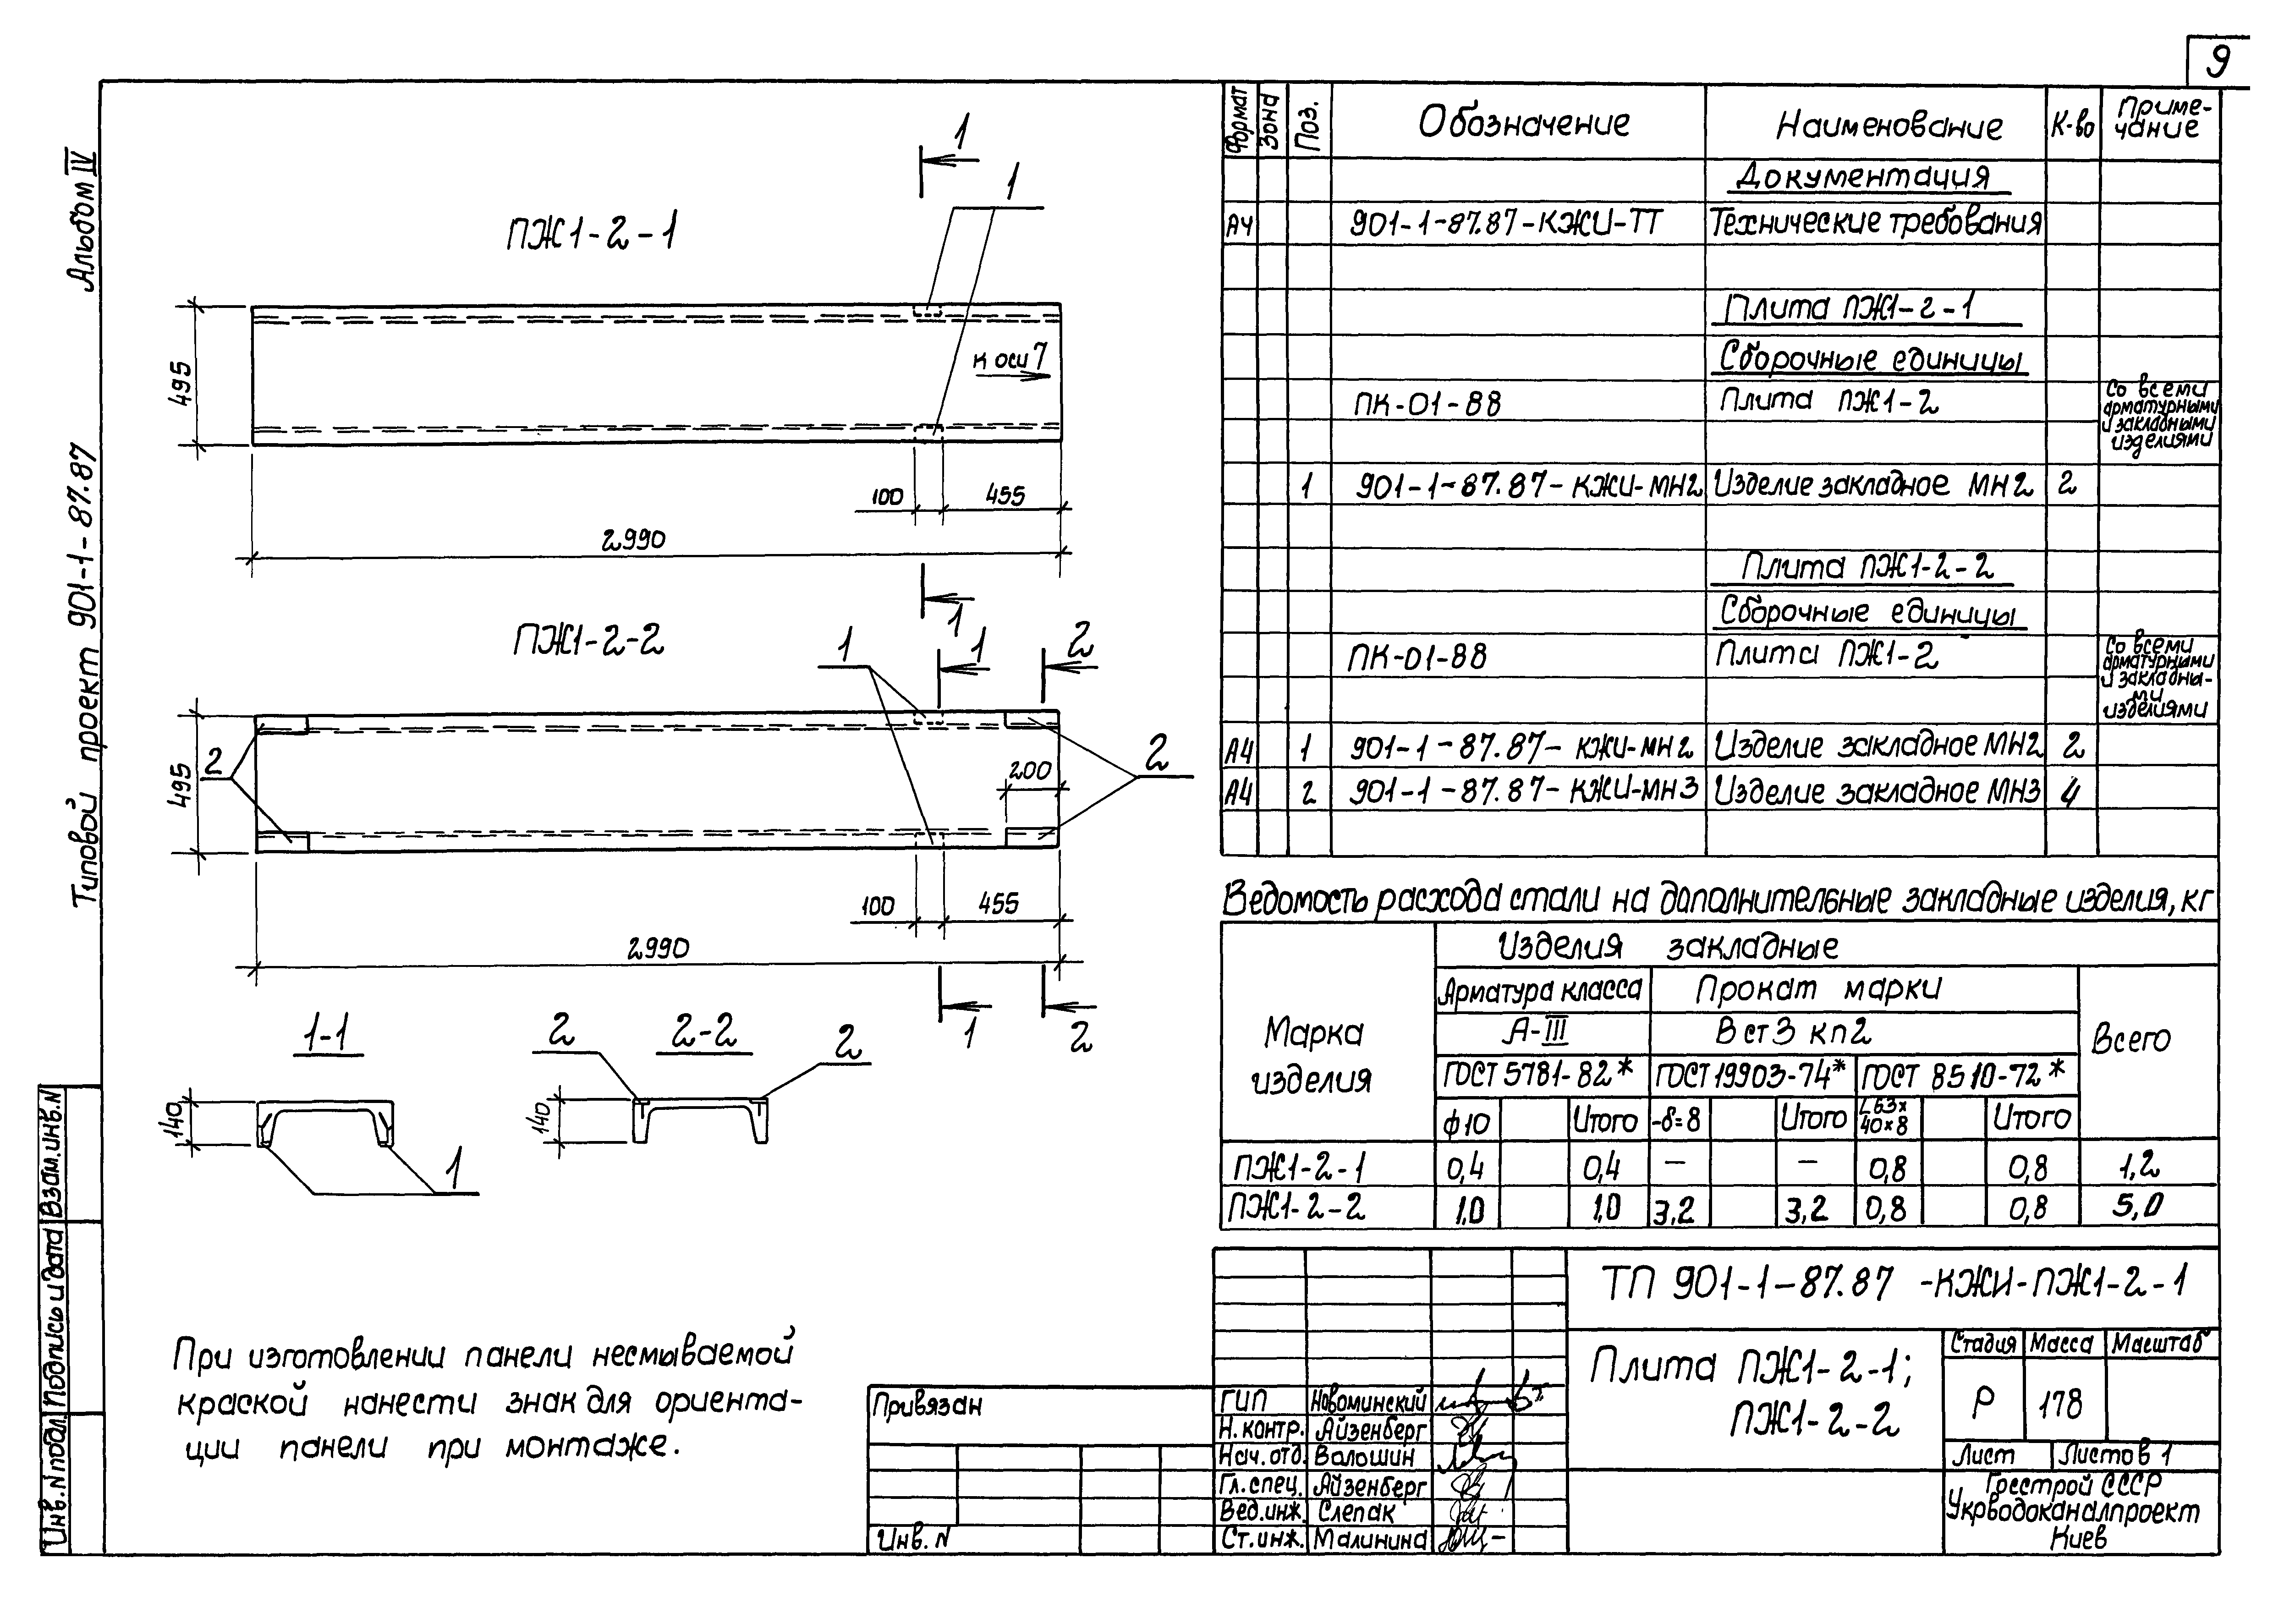 9
Альбом IV
Типовой проект 901-1-87.87
Взам.инв.N
Подпись и дата
Инв.N подл.
ПЖ1-2-1
1
1
495
к оси 7
100
455
2990
1
ПЖ1-2-2
1
1
2
495
2
2
200
100
455
2990
1
2
1-1
140
1
2-2
2
2
140
При изготовлении панели несмываемой
краской нанести знак для ориента-
ции панели при монтаже.
Формат Зона Поз. Обозначение Наименование К-во Приме-
чание
Документация
А4 901-1-87.87-КЖИ-ТТ Технические требования
Плита ПЖ1-2-1
Сборочные единицы
ПК-01-88 Плита ПЖ1-2 Со всеми
арматурными
и закладными
изделиями
1 901-1-87.87-КЖИ-МН2 Изделие закладное МН2 2
Плита ПЖ1-2-2
Сборочные единицы
ПК-01-88 Плита ПЖ1-2 Со всеми
арматурными
и закладны-
ми
изделиями
А4 1 901-1-87.87-КЖИ-МН2 Изделие закладное МН2 2
А4 2 901-1-87.87-КЖИ-МН3 Изделие закладное МН3 4
Ведомость расхода стали на дополнительные закладные изделия, кг
Марка
изделия
Изделия закладные
Арматура класса Прокат марки
А-III Вст3 кп2
Всего
ГОСТ 5781-82* ГОСТ 19903-74* ГОСТ 8510-72*
ф10 Итого -δ=8 Итого L63x
40x8 Итого
ПЖ1-2-1 0,4 0,4 — — 0,8 0,8 1,2
ПЖ1-2-2 1,0 1,0 3,2 3,2 0,8 0,8 5,0
ТП 901-1-87.87 -КЖИ-ПЖ1-2-1
Плита ПЖ1-2-1;
ПЖ1-2-2
Стадия Масса Масштаб
Р 178
Лист Листов 1
Госстрой СССР
Укрводоканалпроект
Киев
Привязан
Инв. N
ГИП Новоминский
Н.контр. Айзенберг
Нач.отд. Волошин
Гл.спец. Айзенберг
Вед.инж. Слепак
Ст.инж. Малинина